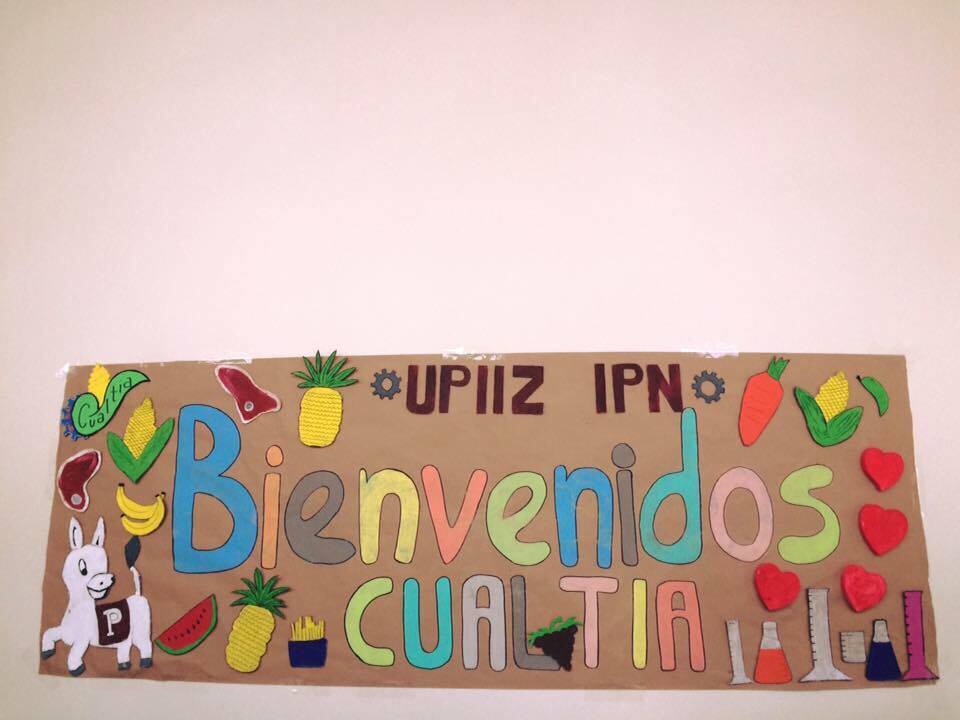 Cualtia
UPIIZ IPN
Bienvenidos
CUALTIA
P